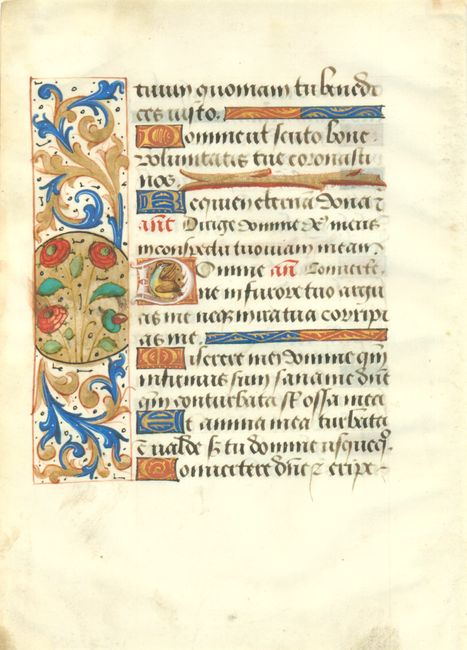 tuum quoniam tu benedi
ces iusto.
Domine ut scuto bone
voluntatis tue coronasti
nos.
Requiem eternam dona ꝛ
añt Dirige domine deꝰ meus
in conspectu tuo viam meam
Domine añ Convertere.
ne in furore tuo argu
as me neqꝫ in ira tua corripi
as me.
Miserere mei domine qm̃
infirmus sum sana me dñe
qm̃ conturbata st̃ ossa mea
Et anima mea turbata
ẽ valde sꝫ tu domine usquequo.
Convertere dñe ꝛ eripe